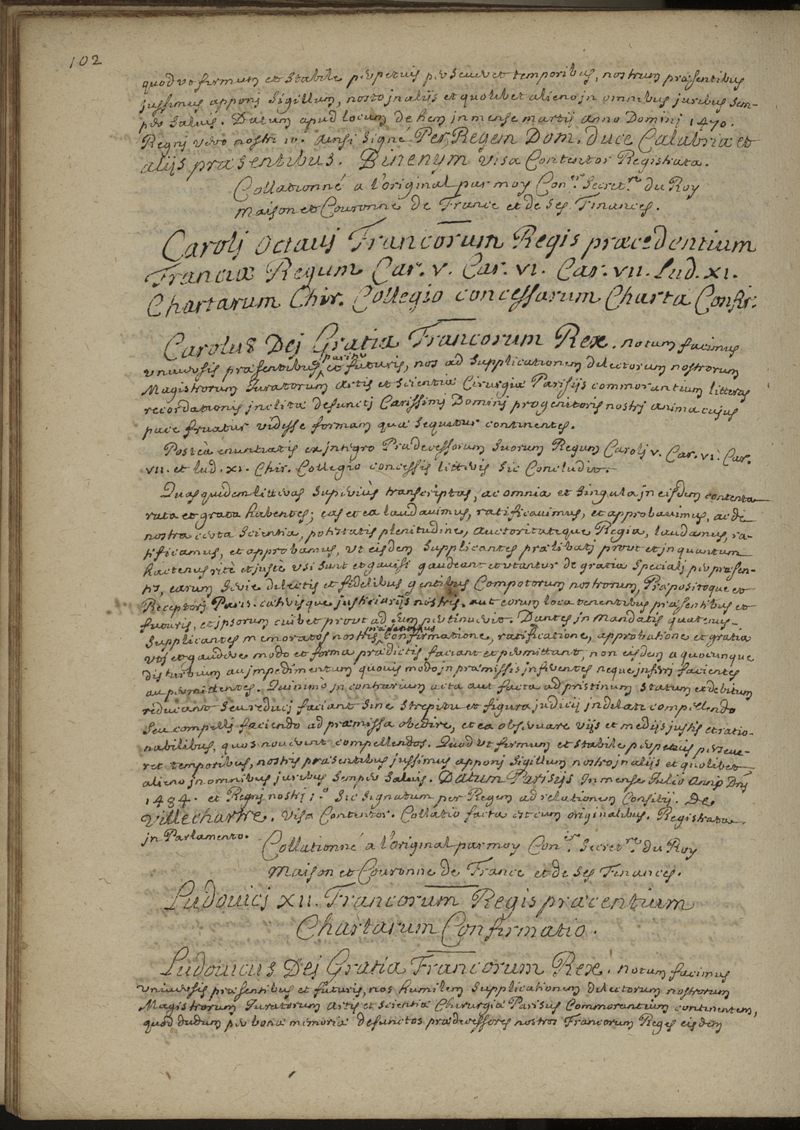 102
quod vt firmum et Stabile perpetuis perseueret temporibus, nostrum præsentibus
jussimus apponj Sigillum, nostro jn alijs et quolibet alieno jn omnibus juribus Sem-
per Saluis. Datum apud locum de hem jn mense martij Anno Dominj 1470.
Regnj vero nostri 10. Ainsi Signe Per Regem Dom. duce Calabriæ et
alijs præsentibus. Binenym visa Contentor Registrata.
Collationné a l'original par moy Con.er Secret.re du Roy
Maison et Couronne de France et de Ses Finances.
Carolj Octauj Francorum Regis præcedentium
Franciæ Regum Car. v. Car. vi. Car. vii. Lud. xi.
Chartarum Chir. Collegio concessarum Charta Confir.
Carolus Dej Gratia Francorum Rex. notum facimus
vniuersis præsentibus pariter et futuris, nos ad Supplicationem dilectorum nostrorum
Magistrorum Juratorum artis et Scientiæ Cirurgiæ Parisijs commorantium litteras
recordationis jnclitæ defunctj Carissimj Dominj progenitoris nostrj animæ cujus
pace fruatur vidisse formam quæ Sequitur continentes.
Postea enuntiatis ex jntegro Prædecessorum Suorum Regum Carolj v. Car. vi. Car.
vii. et lud. xi. Chir. Collegio concessis litteris Sic Concluditur.
Quasquidem litteras Superius transcriptas, ac omnia et Singula jn eisdem contenta
rata et grata habentes; eas et ea laudauimus, ratificauimus, et approbauimus, ac de
nostra certa Scientia, potestatis plenitudine, auctoritateque Regia, laudamus, ra-
tificamus, et approbamus, vt eisdem Supplicantes prælibatj prout et jn quantum
hactenus ritè et justè vsi Sunt et gauisi gaudeant et vtantur de gratia Specialj per præsen-
tes, earum Serie dilectis et fidelibus gentibus Compotorum nostrorum, Præpositoque et
Receptorj Paris. cæterisque justiciarijs nostris, aut eorum loca tenentibus præsentibus et
futuris, et jpsorum cuilibet prout ad eum pertinuerit. Dantes jn Mandatis quatenus
Supplicantes memoratos nostris præsentibus Confirmatione, ratificatione, approbatione et gratia
vti et gaudere modo et forma prædictis faciant et permittant, non eisdem a quocunque
disturbium au jmpedimentum quouis modo jn præmissis jnferentes neque jnferrj facientes
au permittentes. Quinimo jn contrarium acta aut facta ad pristinum Statum et debitum
reducant Seu reducj faciant Sine Strepitu et figura judicij jndilatè compellendo
Seu compellj faciendo ad præmissa obedire, et ea obseruare vijs et medijs justis et ratio-
nabilibus, quos nouerint compellendos. Quod vt firmum et Stabile perpetuis perseue-
ret temporibus, nostris præsentibus jussimus apponj Sigillum nostro jn alijs et quolibet
alieno jn omnibus juribus Semper Saluis. Datum Parisijs Jn mense Julio Anno Dnj
1484. et Regnj nostrj 1.° Sic Signatum per Regem ad relationem Consilij. De
Villechartre. Visa Contentor. Collatio facta est cum originalibus. Registrata
jn Parlamento.
Collationné a l'original par moy Con.er Secret.re du Roy
Maison et Couronne de France et de Ses Finances.
Ludouicj xii. Francorum Regis præcentium
Chartarum Confirmatio.
Ludouicus Dej Gratia Francorum Rex. notum facimus
vniuersis præsentibus et futuris, nos humilem Supplicationem dilectorum nostrorum
Magistrorum Juratorum Artis et Scientiæ Chirurgiæ Parisius Commorantium continentem,
quod dudum per bonæ memoriæ defunctos prædecessores nostros Francorum Reges eisdem